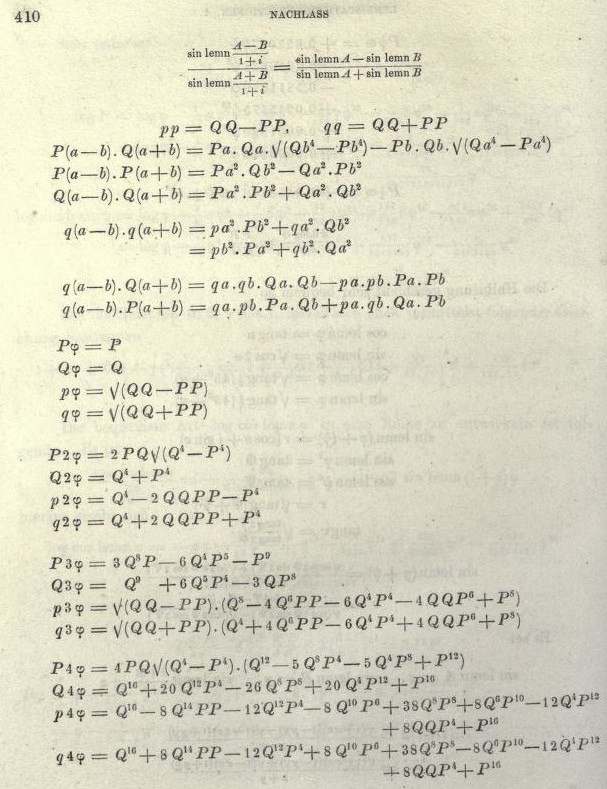 410
NACHLASS
sin lemn (A−B)/(1+i) / sin lemn (A+B)/(1+i) = (sin lemn A − sin lemn B)/(sin lemn A + sin lemn B)
pp = QQ—PP, qq = QQ+PP
P(a—b).Q(a+b) = Pa.Qa.√(Qb⁴—Pb⁴)—Pb.Qb.√(Qa⁴—Pa⁴)
P(a—b).P(a+b) = Pa².Qb²—Qa².Pb²
Q(a—b).Q(a+b) = Pa².Pb²+Qa².Qb²
q(a—b).q(a+b) = pa².Pb²+qa².Qb²
= pb².Pa²+qb².Qa²
q(a—b).Q(a+b) = qa.qb.Qa.Qb—pa.pb.Pa.Pb
q(a—b).P(a+b) = qa.pb.Pa.Qb+pa.qb.Qa.Pb
Pφ = P
Qφ = Q
pφ = √(QQ—PP)
qφ = √(QQ+PP)
P2φ = 2PQ√(Q⁴—P⁴)
Q2φ = Q⁴+P⁴
p2φ = Q⁴—2QQPP—P⁴
q2φ = Q⁴+2QQPP+P⁴
P3φ = 3Q⁸P—6Q⁴P⁵—P⁹
Q3φ = Q⁹+6Q⁵P⁴—3QP⁸
p3φ = √(QQ—PP).(Q⁸—4Q⁶PP—6Q⁴P⁴—4QQP⁶+P⁸)
q3φ = √(QQ+PP).(Q⁴+4Q⁶PP—6Q⁴P⁴+4QQP⁶+P⁸)
P4φ = 4PQ√(Q⁴—P⁴).(Q¹²—5Q⁸P⁴—5Q⁴P⁸+P¹²)
Q4φ = Q¹⁶+20Q¹²P⁴—26Q⁸P⁸+20Q⁴P¹²+P¹⁶
p4φ = Q¹⁶—8Q¹⁴PP—12Q¹²P⁴—8Q¹⁰P⁶+38Q⁸P⁸+8Q⁶P¹⁰—12Q⁴P¹²
+8QQP⁴+P¹⁶
q4φ = Q¹⁶+8Q¹⁴PP—12Q¹²P⁴+8Q¹⁰P⁶+38Q⁸P⁸—8Q⁶P¹⁰—12Q⁴P¹²
+8QQP⁴+P¹⁶